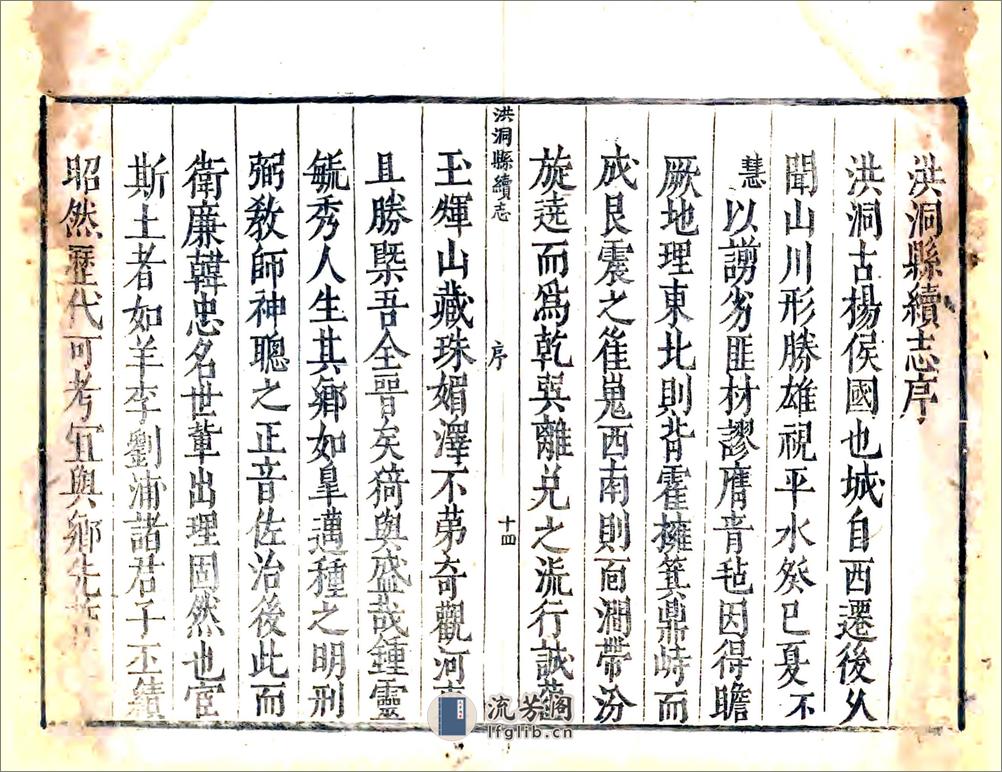 洪洞縣續志序
洪洞古揚侯國也城自西遷後久
聞山川形勝雄視平水癸巳夏不
慧以謭劣匪材謬膺青毡因得瞻
厥地理東北則背霍擁箕鼎峙而
成艮震之崔嵬西南則面澗帶汾
旋遶而爲乾巽離兌之流行誠
洪洞縣續志
序
十四
玉輝山藏珠媚澤不苐奇觀河
且勝槩吾全晉矣猗與盛哉鍾靈
毓秀人生其鄉如臯邁種之明刑
弼教師神聰之正音佐治後此而
衛廉韓忠名世輩出理固然也宦
斯土者如羊李劉浦諸君子丕績
昭然歷代可考宜與鄉先
流芳阁
lfglib.cn